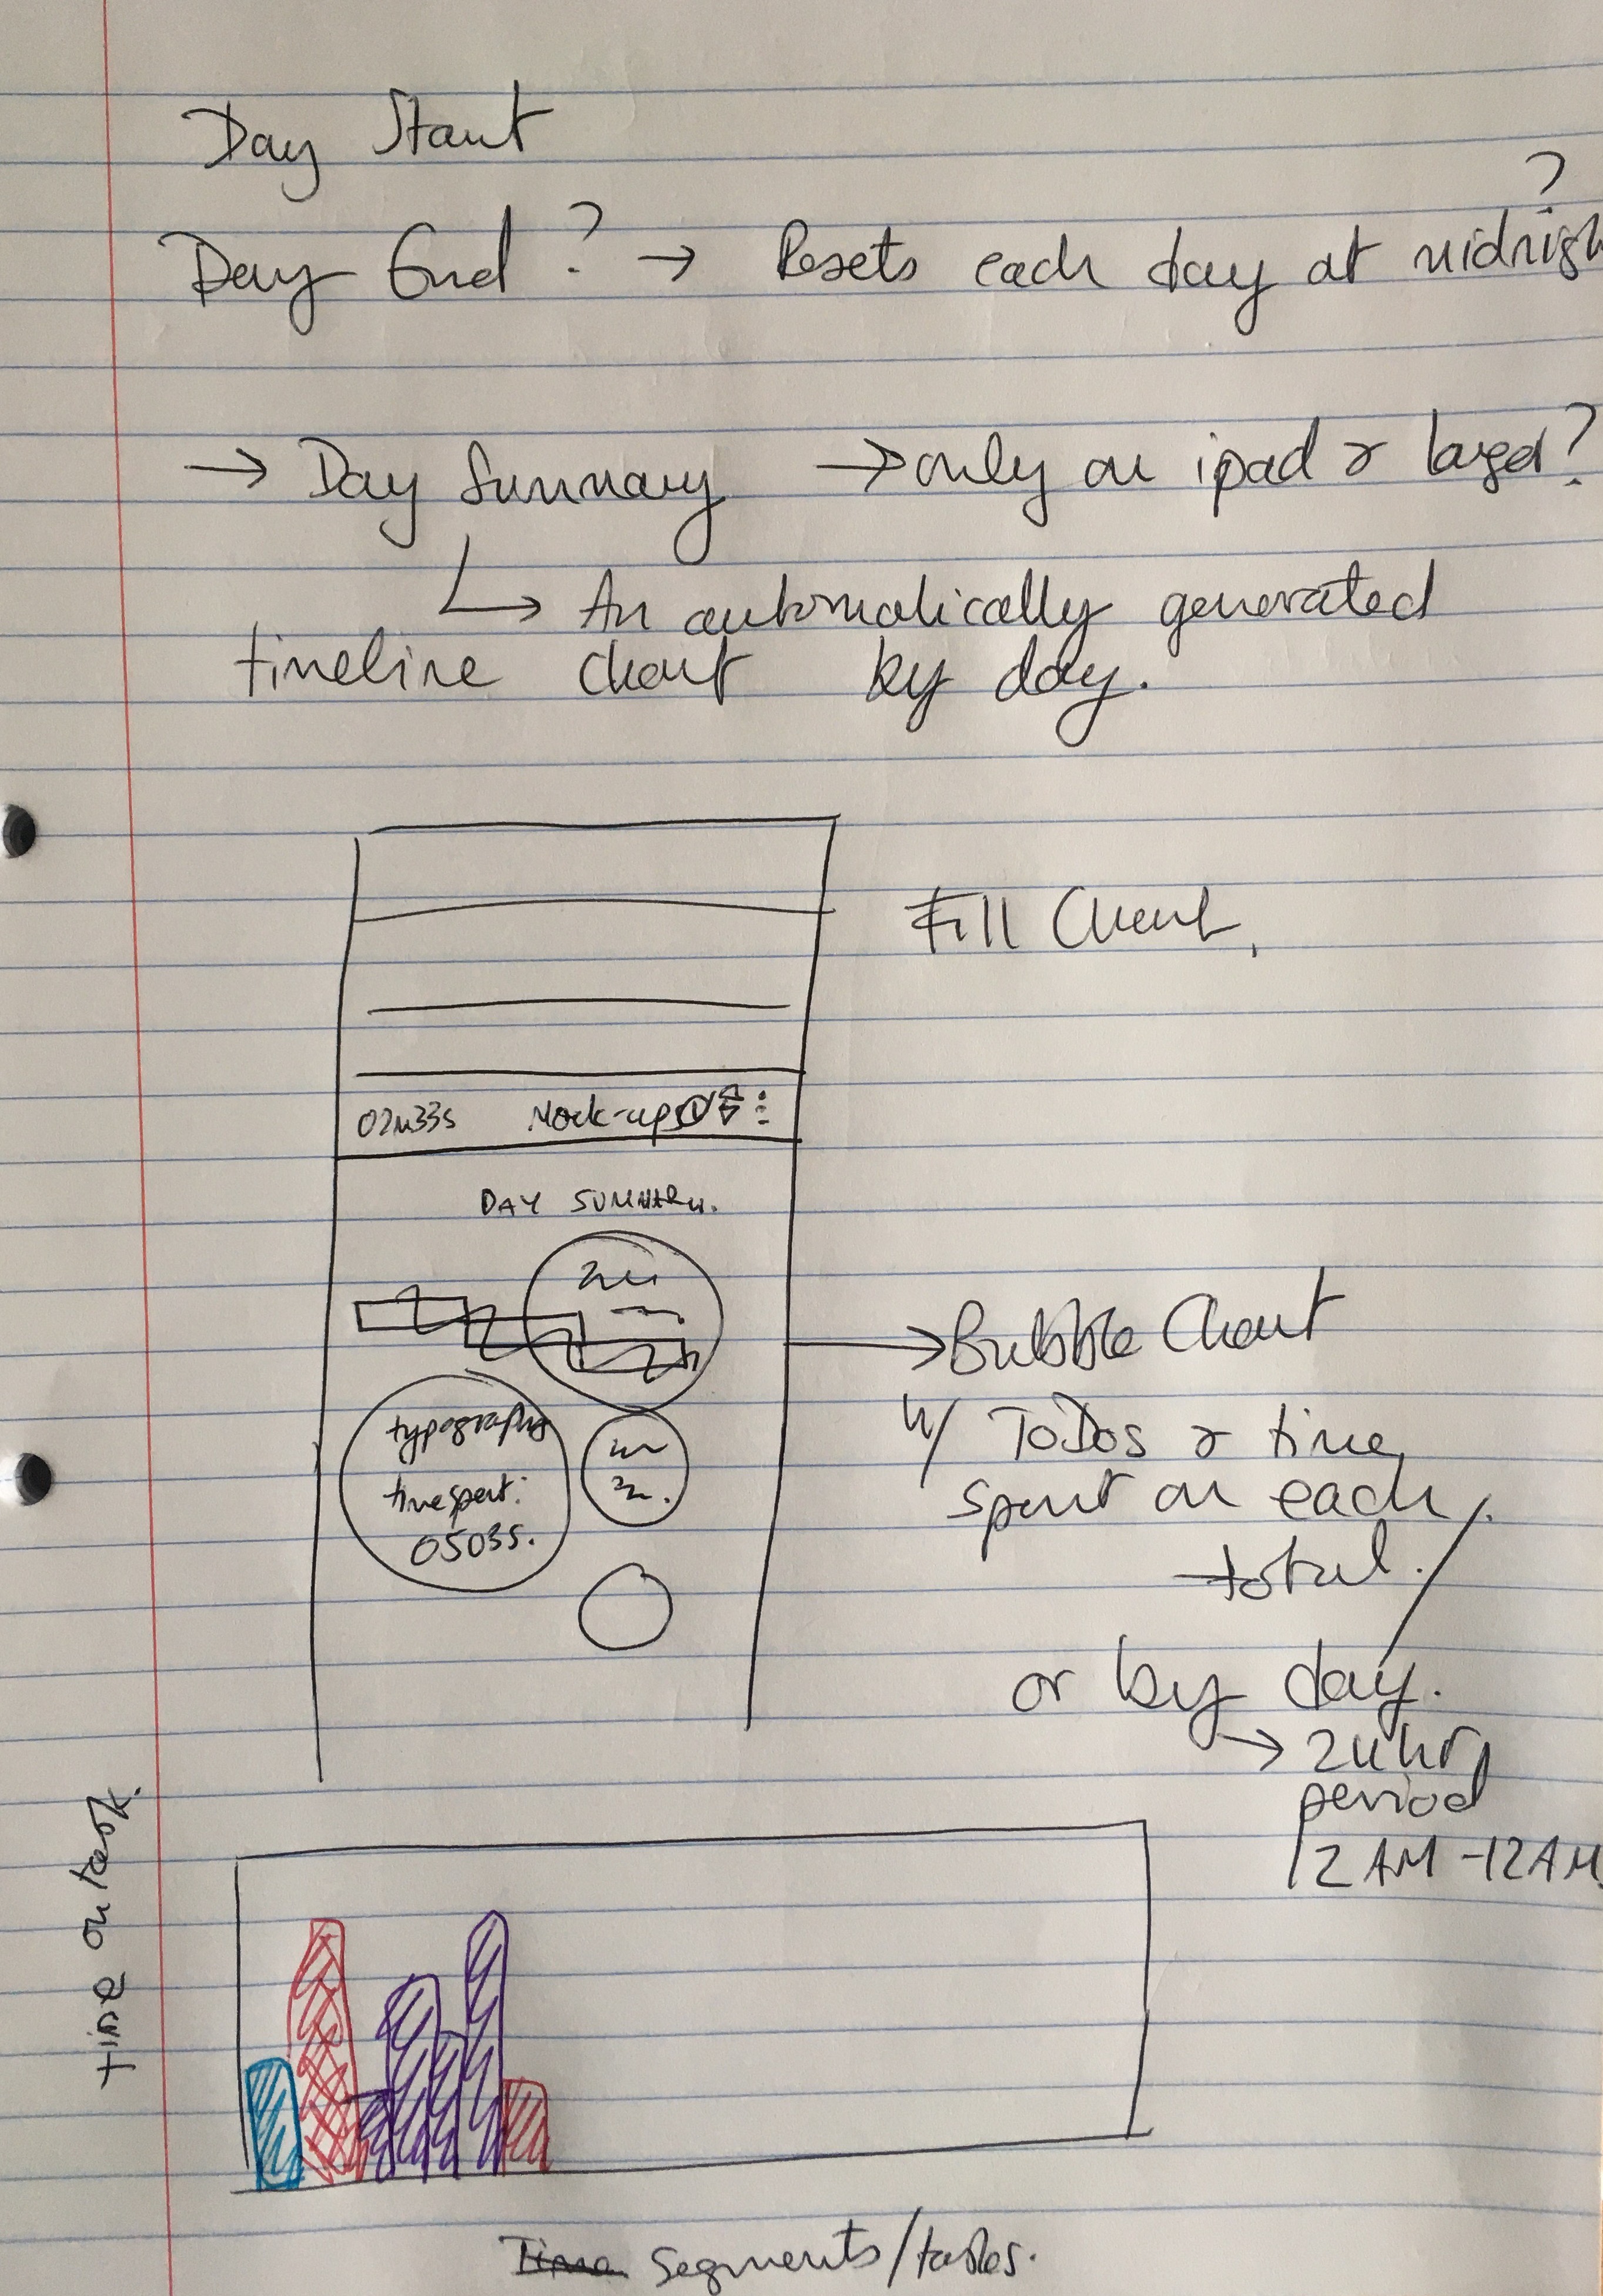 Day Start
Day End ? → Resets each day at midnigh
?
→ Day Summary → only on ipad & larger?
↳ An automatically generated
timeline chart by day.
Fill Chart,
02m33s Mock-up
DAY SUMMARY.
typography
time spent:
0503s.
→ Bubble Chart
w/ ToDos & time
spent on each/.
total.
or by day.
→ 24hr
period
12AM-12AM
time on task.
Time segments/tasks.